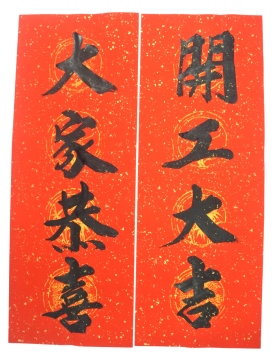 開工大吉
大家恭喜